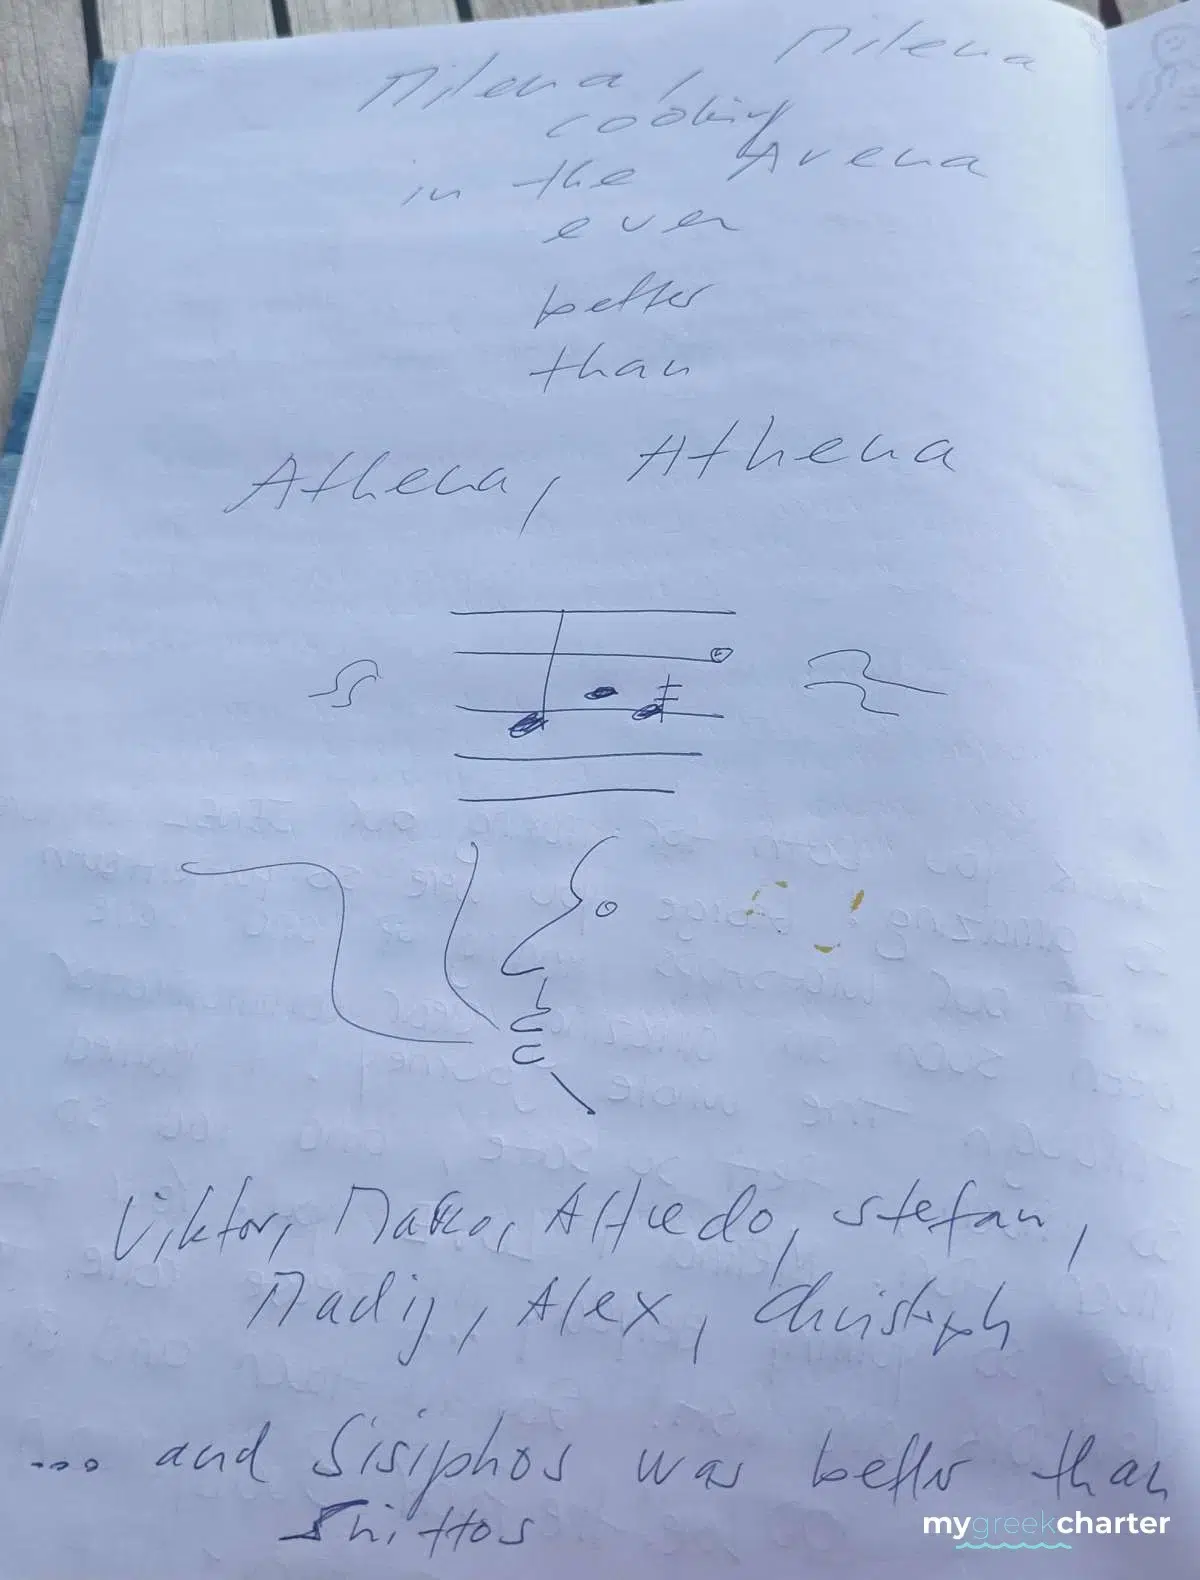 Milena, Milena
cooking
in the Arena
even
better
than
Athena, Athena
Viktor, Marko, Alfredo, Stefan,
Madij, Alex, Christoph
... and Sisiphos was better than
Shittos
mygreekcharter